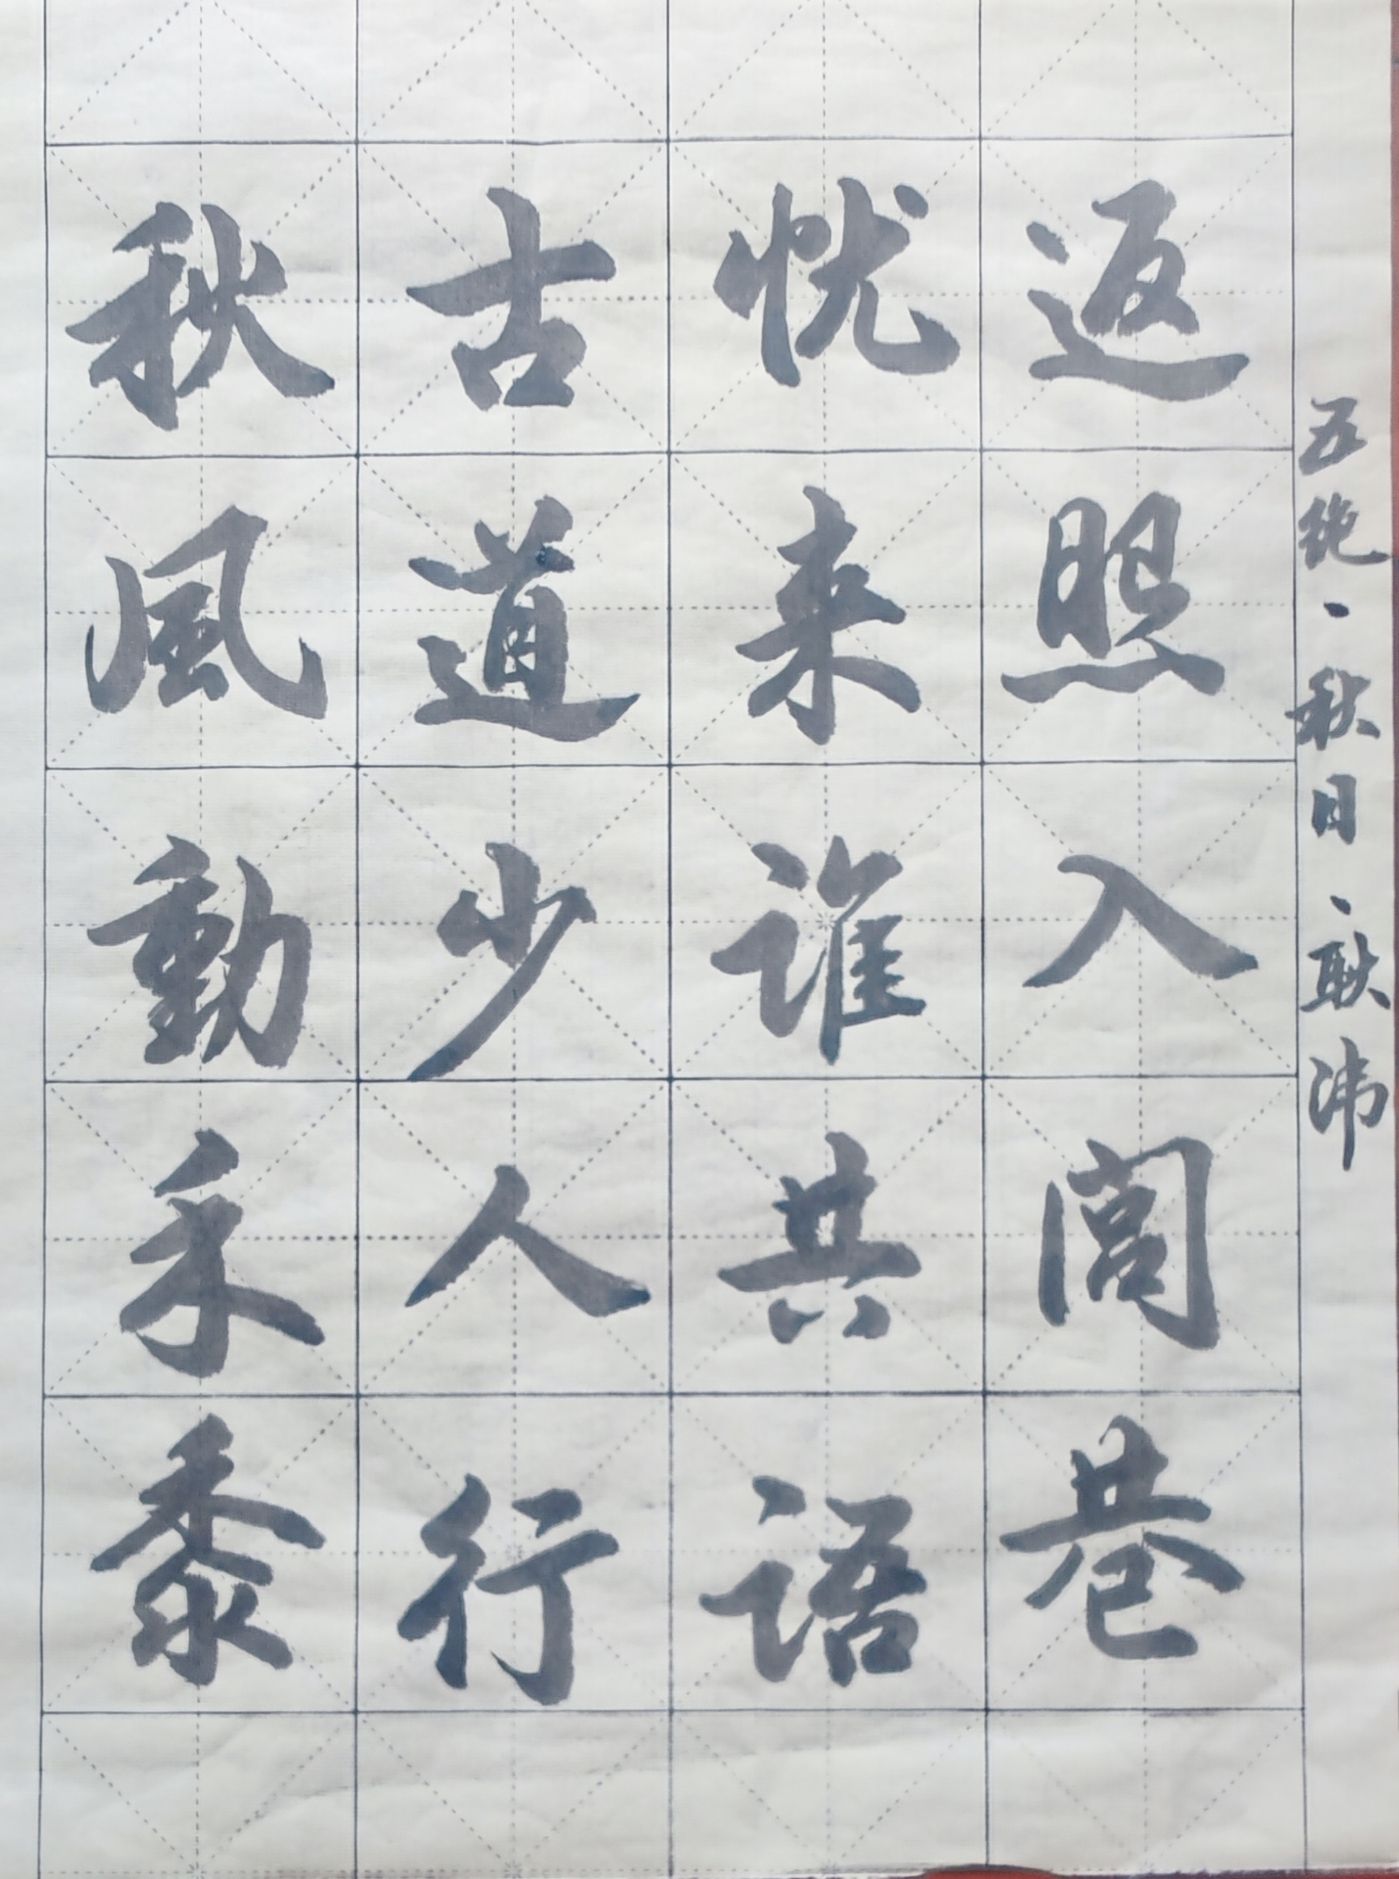 五绝·秋日·耿湋
返照入闾巷
忧来谁共语
古道少人行
秋風動禾黍